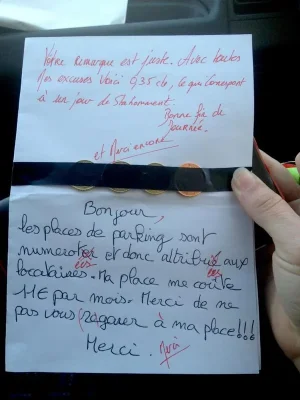 Votre remarque est juste. Avec toutes
Nos excuses Voici 0,35 cts, ce qui correspond
à un jour de Stationnement.
Bonne fin de
Journée.
et Merci encore
Bonjour,
les places de parking sont
numeroter et donc attribué aux
ées ées
locataires. Ma place me coûte
11€ par mois. Merci de ne
pas vous (ragarer à ma place!!!
Merci. Merci